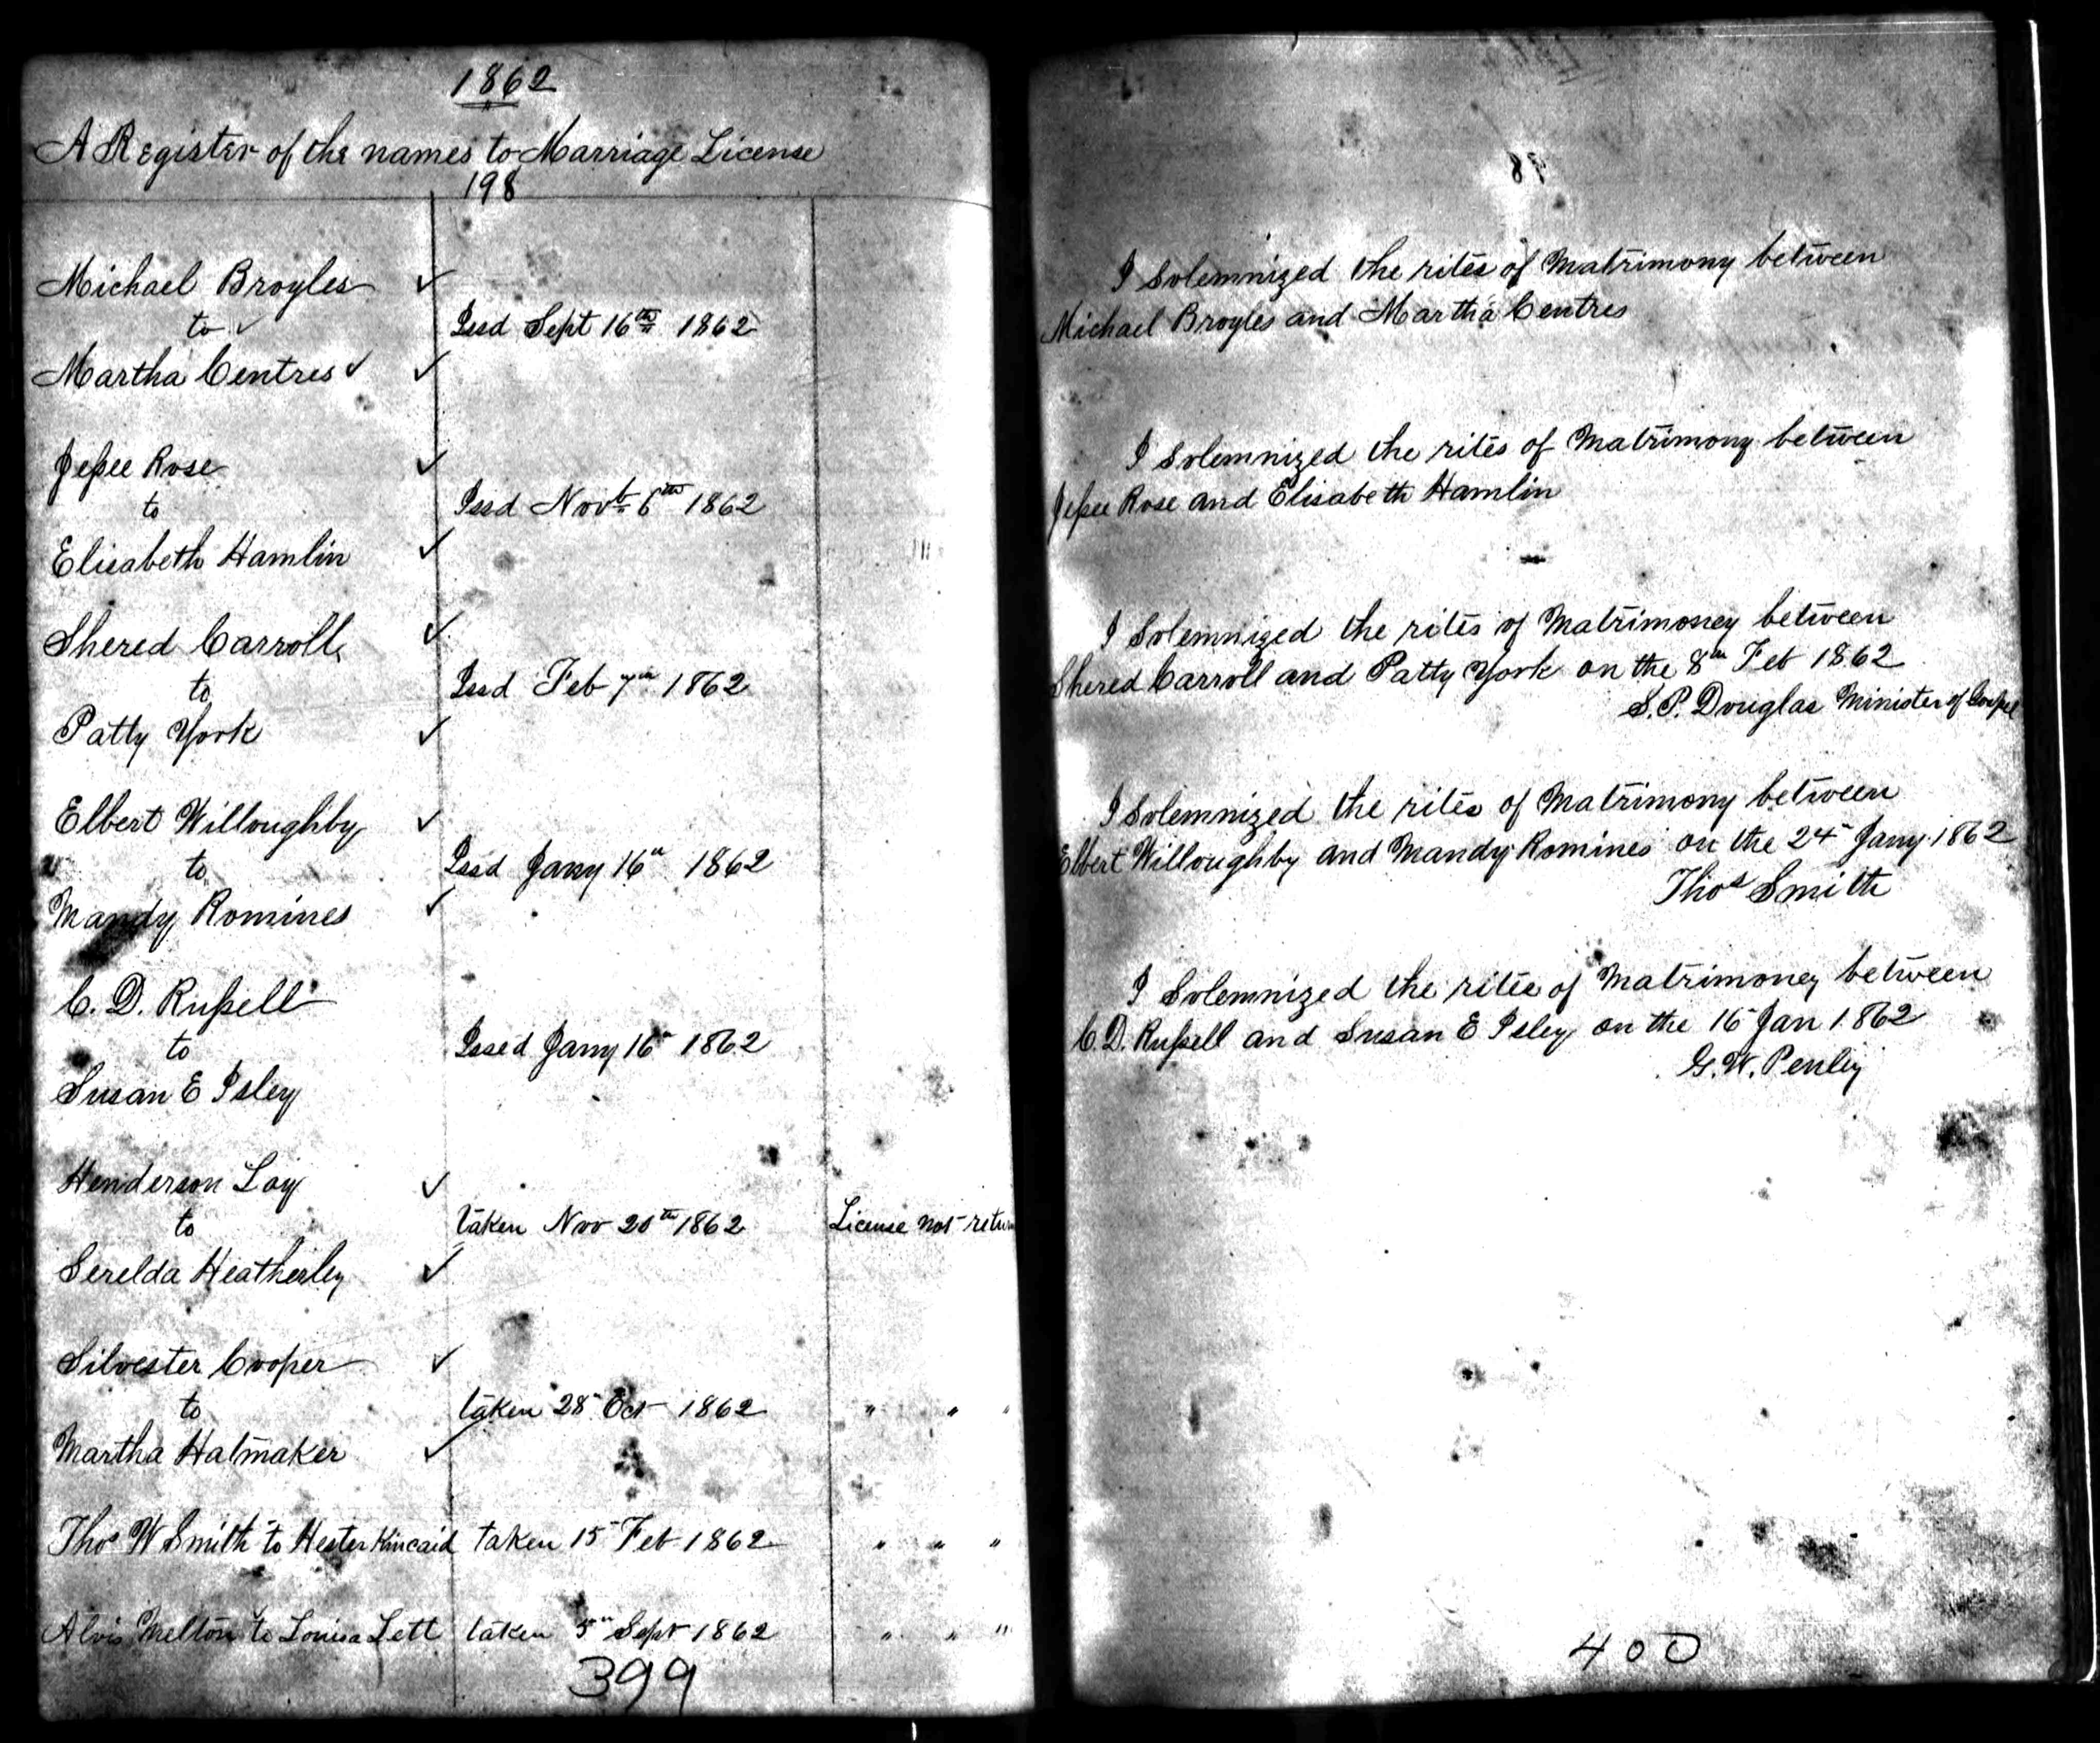 1862
A Register of the names to Marriage License
198
Michael Broyles
to
Issd Sept 16th 1862
Martha Centres
Jessee Rose
to
Issd Novr 6th 1862
Elisabeth Hamlin
Shered Carroll
to
Issd Feb 7th 1862
Patty York
Elbert Willoughby
to
Issd Jany 16th 1862
Mandy Romines
C. D. Russell
to
Issed Jany 16th 1862
Susan E Isley
Henderson Loy
to
taken Nov 20th 1862 License not return
Serelda Heatherley
Silvester Cooper
to
taken 28th Oct 1862 " " "
Martha Hatmaker
Thos W Smith to Hester Kincaid taken 15th Feb 1862 " " "
Alvis Melton to Louisa Lett taken 5th Sept 1862 " " "
399
I Solemnized the rites of Matrimony between
Michael Broyles and Martha Centres
I Solemnized the rites of Matrimony between
Jessee Rose and Elisabeth Hamlin
I Solemnized the rites of Matrimoney between
Shered Carroll and Patty York on the 8th Feb 1862
S. P. Douglas Minister of Gospel
I Solemnized the rites of Matrimony between
Elbert Willoughby and Mandy Romines on the 24th Jany 1862
Thos Smith
I Solemnized the rites of Matrimoney between
C. D. Russell and Susan E Isley on the 16th Jan 1862
G. W. Penley
400